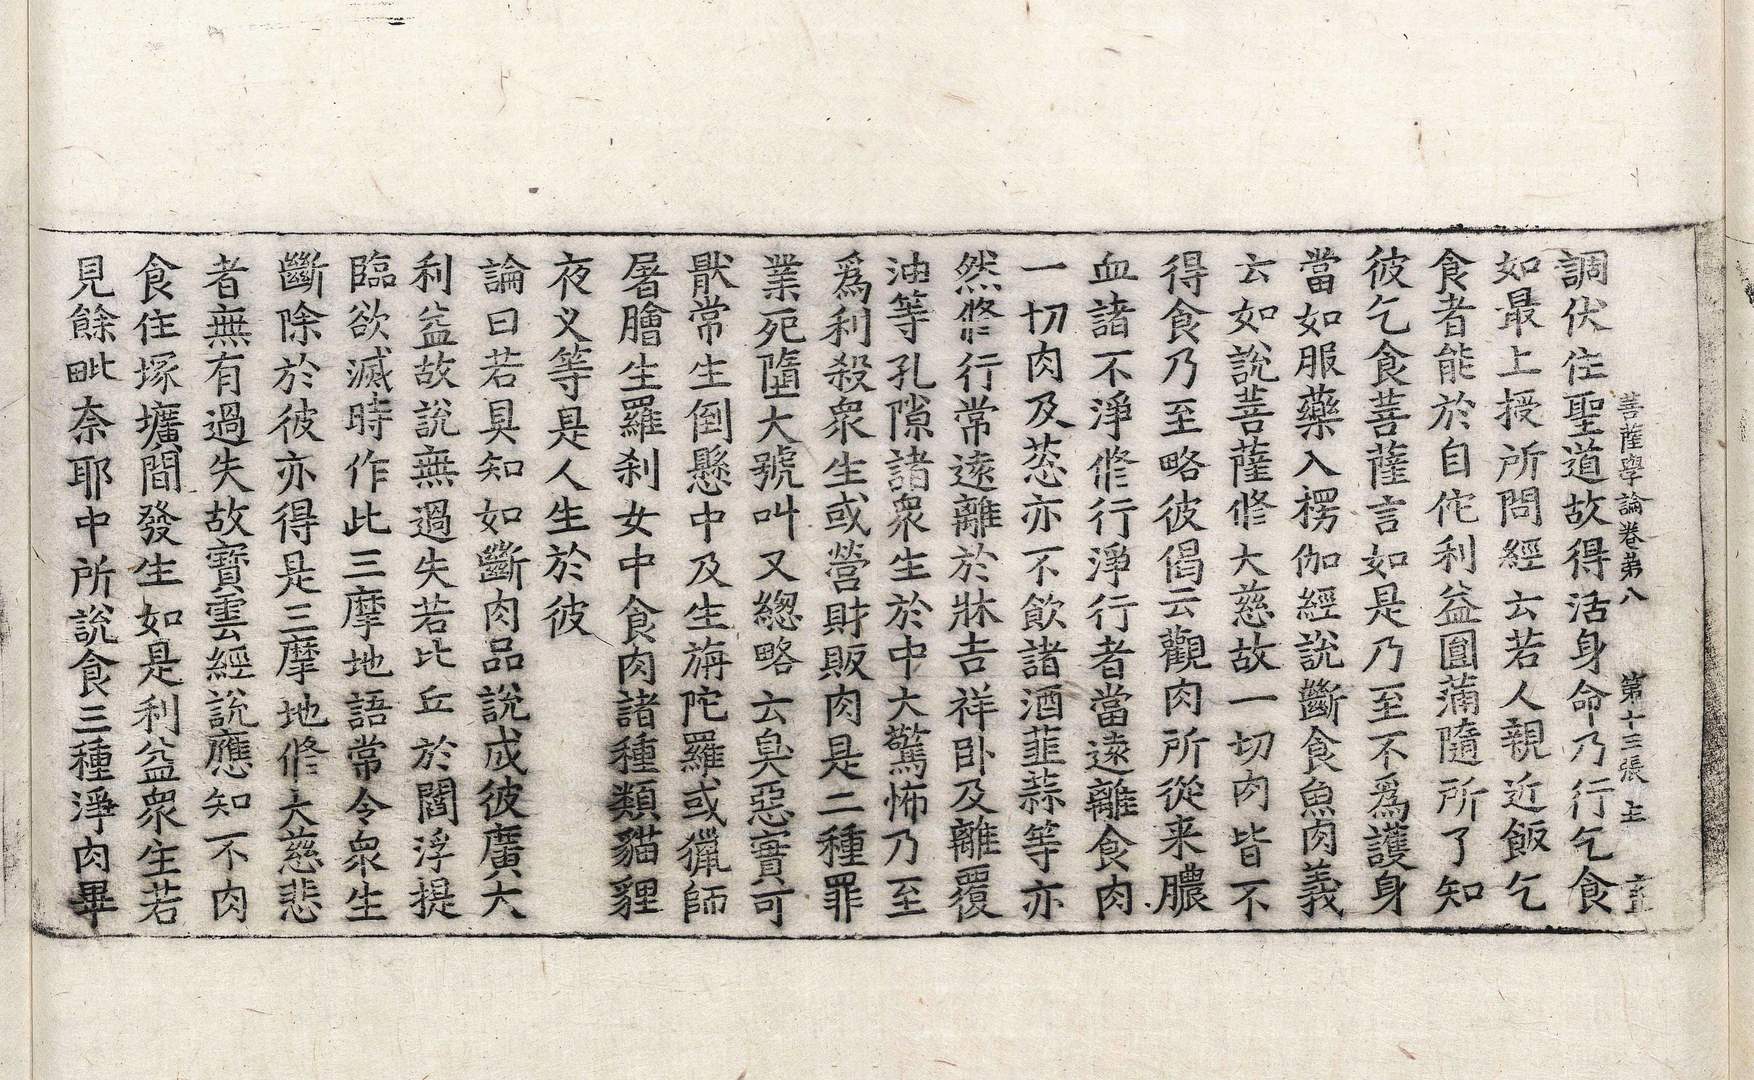 菩薩學論卷第八　第十三張　𠀍
調伏住聖道故得活身命乃行乞食
如最上授所問經云若人親近飯乞
食者能於自佗利益圓蒲隨所了知
彼乞食菩薩言如是乃至不爲護身
當如服藥入楞伽經說斷食魚肉義
云如說菩薩修大慈故一切肉皆不
得食乃至略彼偈云觀肉所從来膿
血諸不淨修行淨行者當遠離食肉
一切肉及葱亦不飲諸酒韮蒜等亦
然修行常遠離於牀吉祥卧及離覆
油等孔隙諸衆生於中大驚怖乃至
爲利殺衆生或營財販肉是二種罪
業死墮大號叫又緫略云臭惡實可
猒常生倒懸中及生旃陀羅或獵師
屠膾生羅刹女中食肉諸種類貓貍
夜叉等是人生於彼
論曰若具知如斷肉品說成彼廣大
利益故說無過失若比丘於閻浮提
臨欲滅時作此三摩地語常令衆生
斷除於彼亦得是三摩地修大慈悲
者無有過失故寶雲經說應知不肉
食住塚壙間發生如是利益衆生若
見餘毗奈耶中所說食三種淨肉畢